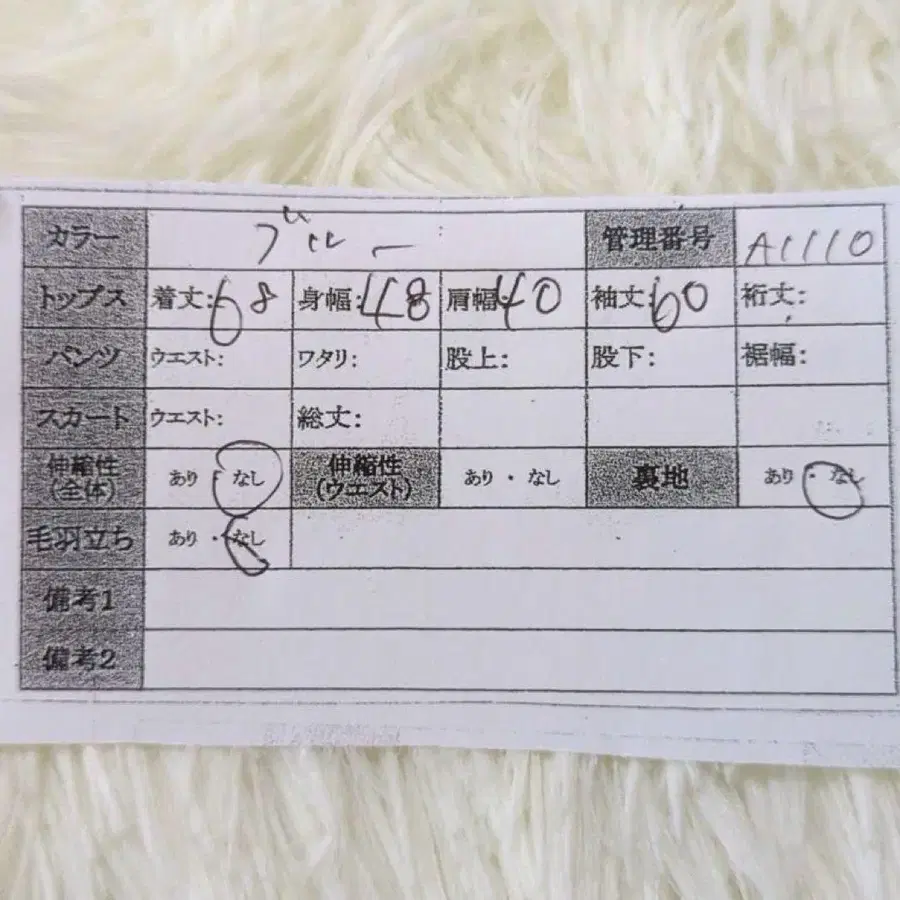 カラー ブルー 管理番号 A1110
トップス 着丈:68 身幅:48 肩幅:40 袖丈:60 裄丈:
パンツ ウエスト: ワタリ: 股上: 股下: 裾幅:
スカート ウエスト: 総丈:
伸縮性(全体) あり・なし 伸縮性(ウエスト) あり・なし 裏地 あり・なし
毛羽立ち あり・なし
備考1
備考2